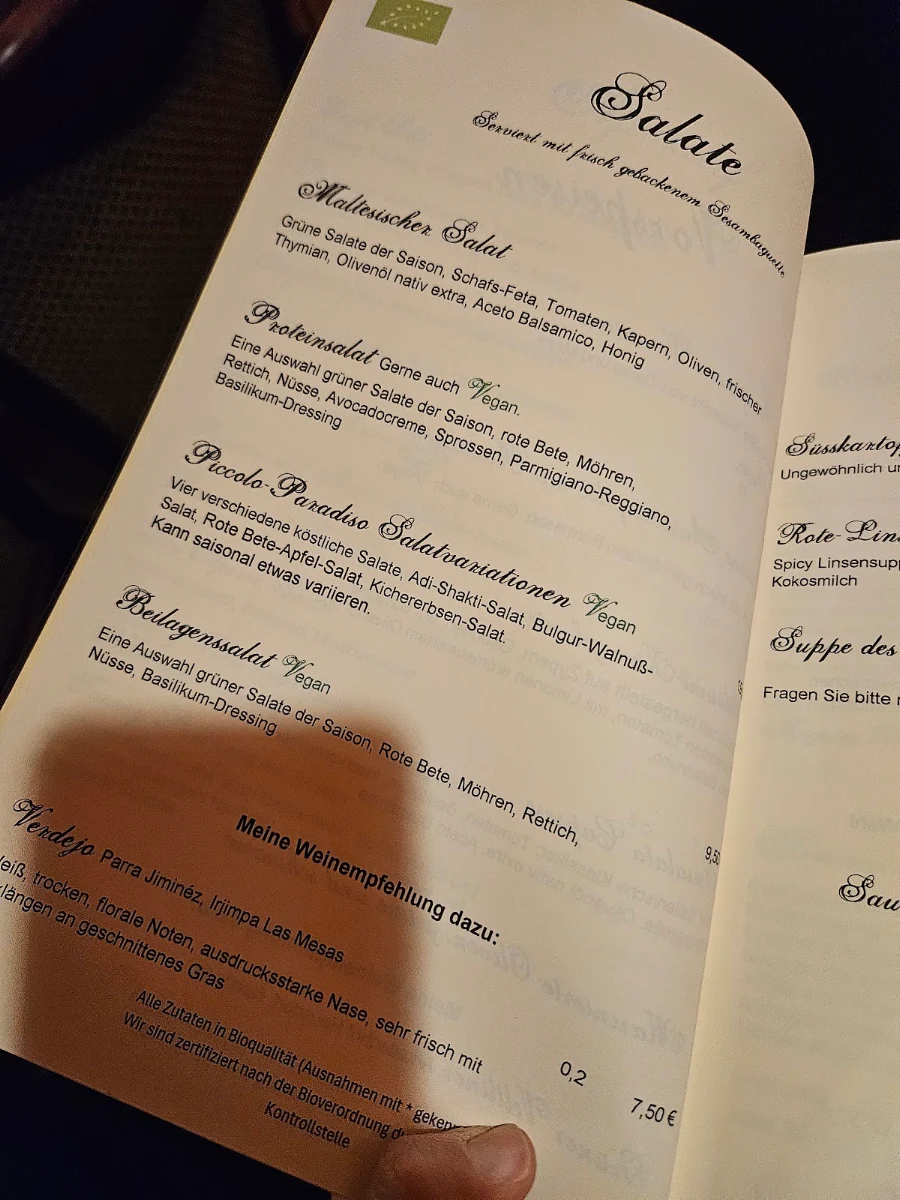 Salate
Serviert mit frisch gebackenem Sesambaguette
Maltesischer Salat
Grüne Salate der Saison, Schafs-Feta, Tomaten, Kapern, Oliven, frischer
Thymian, Olivenöl nativ extra, Aceto Balsamico, Honig
Proteinsalat Gerne auch Vegan.
Eine Auswahl grüner Salate der Saison, rote Bete, Möhren,
Rettich, Nüsse, Avocadocreme, Sprossen, Parmigiano-Reggiano,
Basilikum-Dressing
Piccolo-Paradiso Salatvariationen Vegan
Vier verschiedene köstliche Salate, Adi-Shakti-Salat, Bulgur-Walnuß-
Salat, Rote Bete-Apfel-Salat, Kichererbsen-Salat.
Kann saisonal etwas variieren.
Beilagenssalat Vegan
Eine Auswahl grüner Salate der Saison, Rote Bete, Möhren, Rettich,
Nüsse, Basilikum-Dressing
9,50
Meine Weinempfehlung dazu:
Verdejo Parra Jiminéz, Irjimpa Las Mesas
trocken, florale Noten, ausdrucksstarke Nase, sehr frisch mit
an geschnittenes Gras
0,2 7,50 €
Alle Zutaten in Bioqualität (Ausnahmen mit *
Wir sind zertifiziert nach der Bioverordnung
Kontrollstelle
Ungewöhnlich
Spicy
Kokosmilch
Suppe des
Fragen Sie bitte